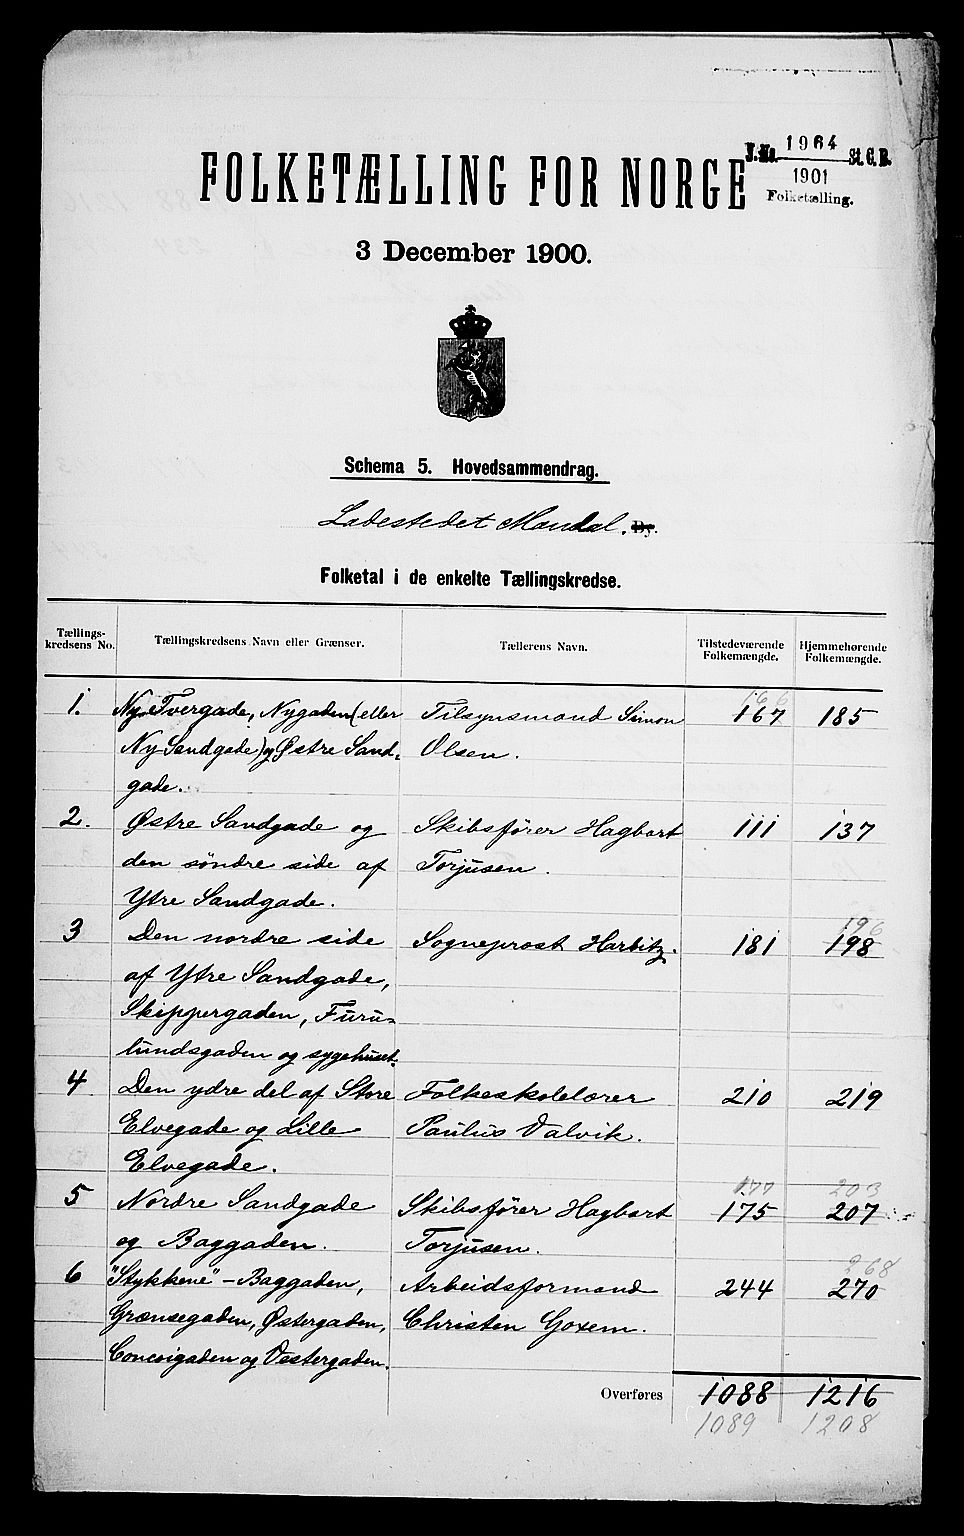 FOLKETÆLLING FOR NORGE
J. No. 1964 St. C. B.
1901
Folketælling.
3 December 1900.
Schema 5. Hovedsammendrag.
Ladestedet Mandal. By.
Folketal i de enkelte Tællingskredse.
Tællings-kredsens No. Tællingskredsens Navn eller Grænser. Tællerens Navn. Tilstedeværende Folkemængde. Hjemmehørende Folkemængde.
166
1. Ny Tvergade, Nygaden (eller Tilsynsmand Simon 167 185
Ny Sandgade) og Østre Sand- Olsen.
gade.
2. Østre Sandgade og Skibsfører Hagbart 111 137
den søndre side af Torjusen.
Ytre Sandgade.
196
3 Den nordre side Sogneprost Harbitz. 181 198
af Ytre Sandgade,
Skippergaden, Furu-
lundsgaden og sygehuset.
4 Den ydre del af Store Folkeskolelærer 210 219
Elvegade og Lille Paulus Valvik.
Elvegade.
177 203
5 Nordre Sandgade Skibsfører Hagbart 175 207
og Baggaden. Torjusen.
268
6 "Stykkene" - Baggaden, Arbeidsformand 244 270
Grænsegaden, Østergaden, Christen Goxem.
og Vestergaden.
Overføres 1088 1216
1089 1208